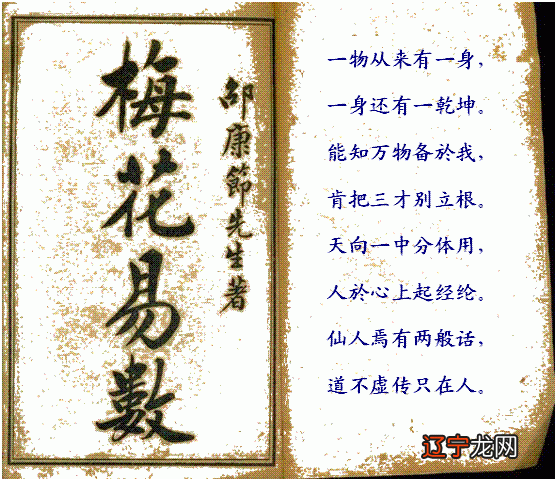 梅花易數
邵康節先生著
一物从来有一身，
一身还有一乾坤。
能知万物备於我，
肯把三才别立根。
天向一中分体用，
人於心上起经纶。
仙人焉有两般话，
道不虚传只在人。
辽宁龙网